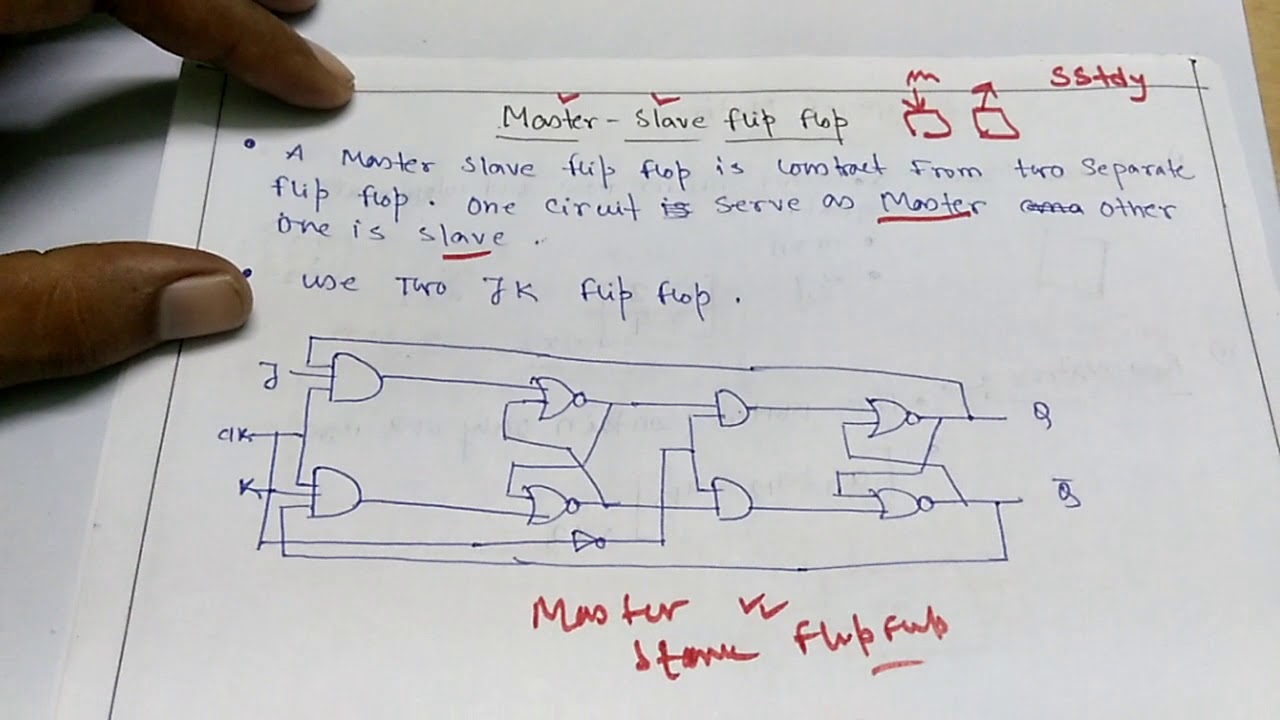 m
SStdy
Master - Slave flip flop
A Master slave flip flop is constract from two separate
flip flop. One circuit is serve as Master other
one is slave.
Use Two JK flip flop.
J
Q
clk
K
Q̅
Master
flip flop